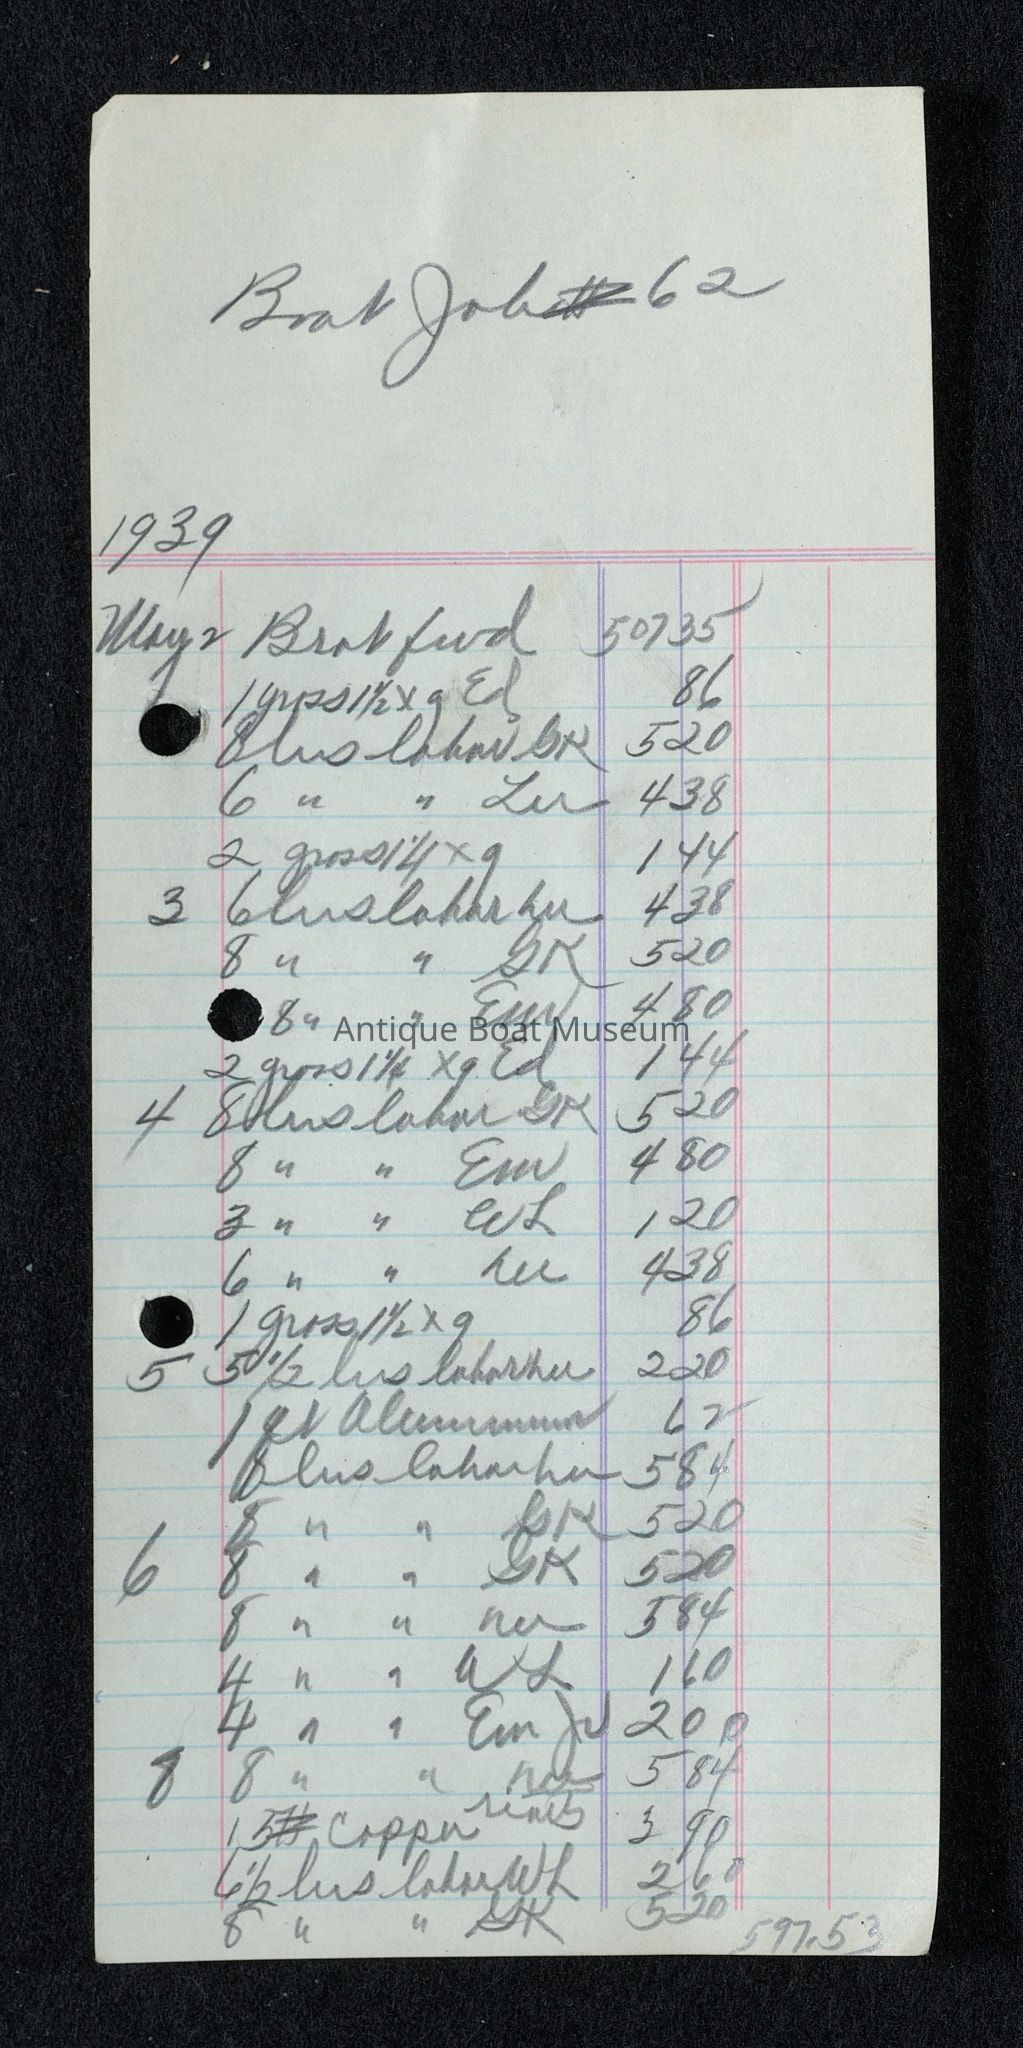 Boat Job # 62
1939
May 2 Brot fwd 507 35
1 gross 1 1/2 x 9 Ed 86
8 hrs labor GK 5 20
6 " " Lee 4 38
2 gross 1 1/4 x 9 1 44
3 6 hrs labor Lee 4 38
8 " " GK 5 20
8 " " Em 4 80
Antique Boat Museum
2 gross 1 1/4 x 9 Ed 1 44
4 8 hrs labor GK 5 20
8 " " Em 4 80
3 " " WL 1 20
6 " " Lee 4 38
1 gross 1 1/2 x 9 86
5 5 1/2 hrs labor 2 20
1 qt Aluminum 62
8 hrs labor 5 84
8 " " GK 5 20
6 8 " " GK 5 20
8 " " 5 84
4 " " WL 1 60
4 " " Em Jr 2 00
8 8 " " 5 84
15# Copper 3 90
6 1/2 hrs labor WL 2 60
8 " " GK 5 20
597.53